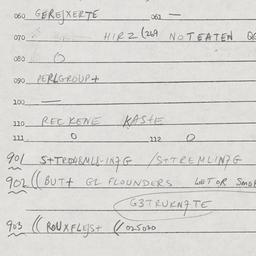 060 GEREJXERTE 061 —
070 HIRZ (269 NOT EATEN
080 O
090 PERLGROUP+
100 —
110 RECKENE KASTE
111 O 112 O
901 /STREMLIN7G
902 ((BUT+ GL FLOUNDERS WET OR
G3TRUKN7TE
903 ((ROUXFLEJS+ (/025020